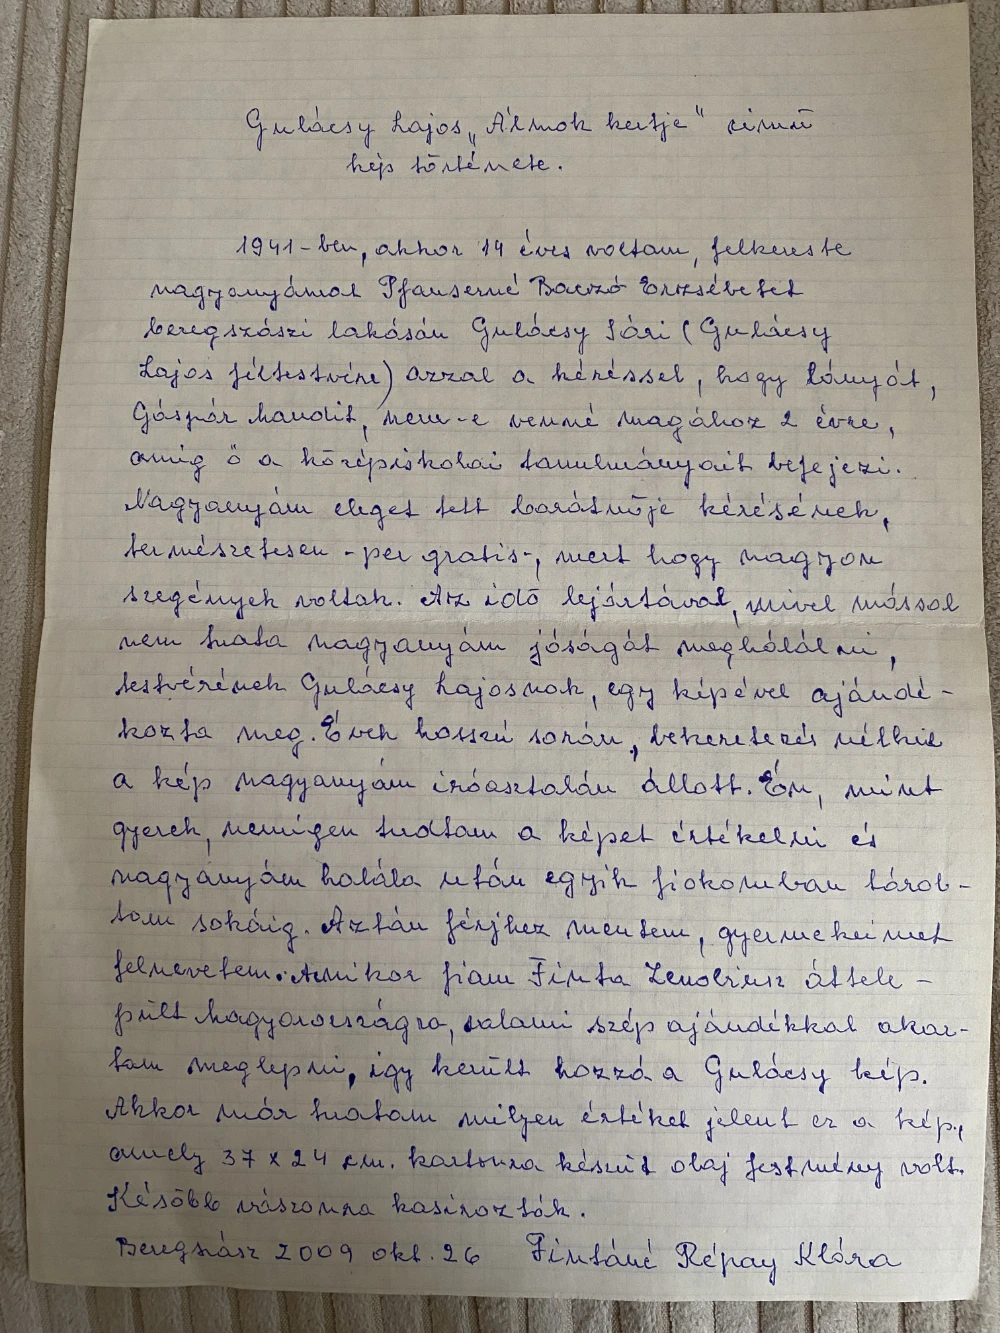 Gulácsy Lajos „Álmok kertje" cimű
kép története.
1941-ben, akkor 14 éves voltam, felkereste
nagyanyámat Pfauserné Baczó Erzsébetet
beregszászi lakásán Gulácsy Sári (Gulácsy
Lajos féltestvére) azzal a kéréssel, hogy lányát,
Gáspár Mandit, nem-e venné magához 2 évre,
amig ő a középiskolai tanulmányait befejezi.
Nagyanyám eleget tett barátnője kérésének,
természetesen -per gratis-, mert hogy nagyon
szegények voltak. Az idő lejártával, mivel mással
nem tudta nagyanyám jóságát meghálálni,
testvérének Gulácsy Lajosnak, egy képével ajándé-
kozta meg. Évek hosszú során, bekeretezés nélkül
a kép nagyanyám iróasztalán állott. Én, mint
gyerek, nemigen tudtam a képet értékelni és
nagyányám halála után egyik fiokomban tárol-
tam sokáig. Aztán férjhez mentem, gyermekeimet
felneveltem. Amikor fiam Finta Zenobiusz áttele-
pült Magyarországra, valami szép ajándékkal akar-
tam meglepni, igy került hozzá a Gulácsy kép.
Akkor már tudtam milyen értéket jelent ez a kép,
amely 37 x 24 cm. kartonra készűt olaj festmény volt.
Később vászonra kasirozták.
Beregszász 2009 okt. 26 Fintáné Répay Klára